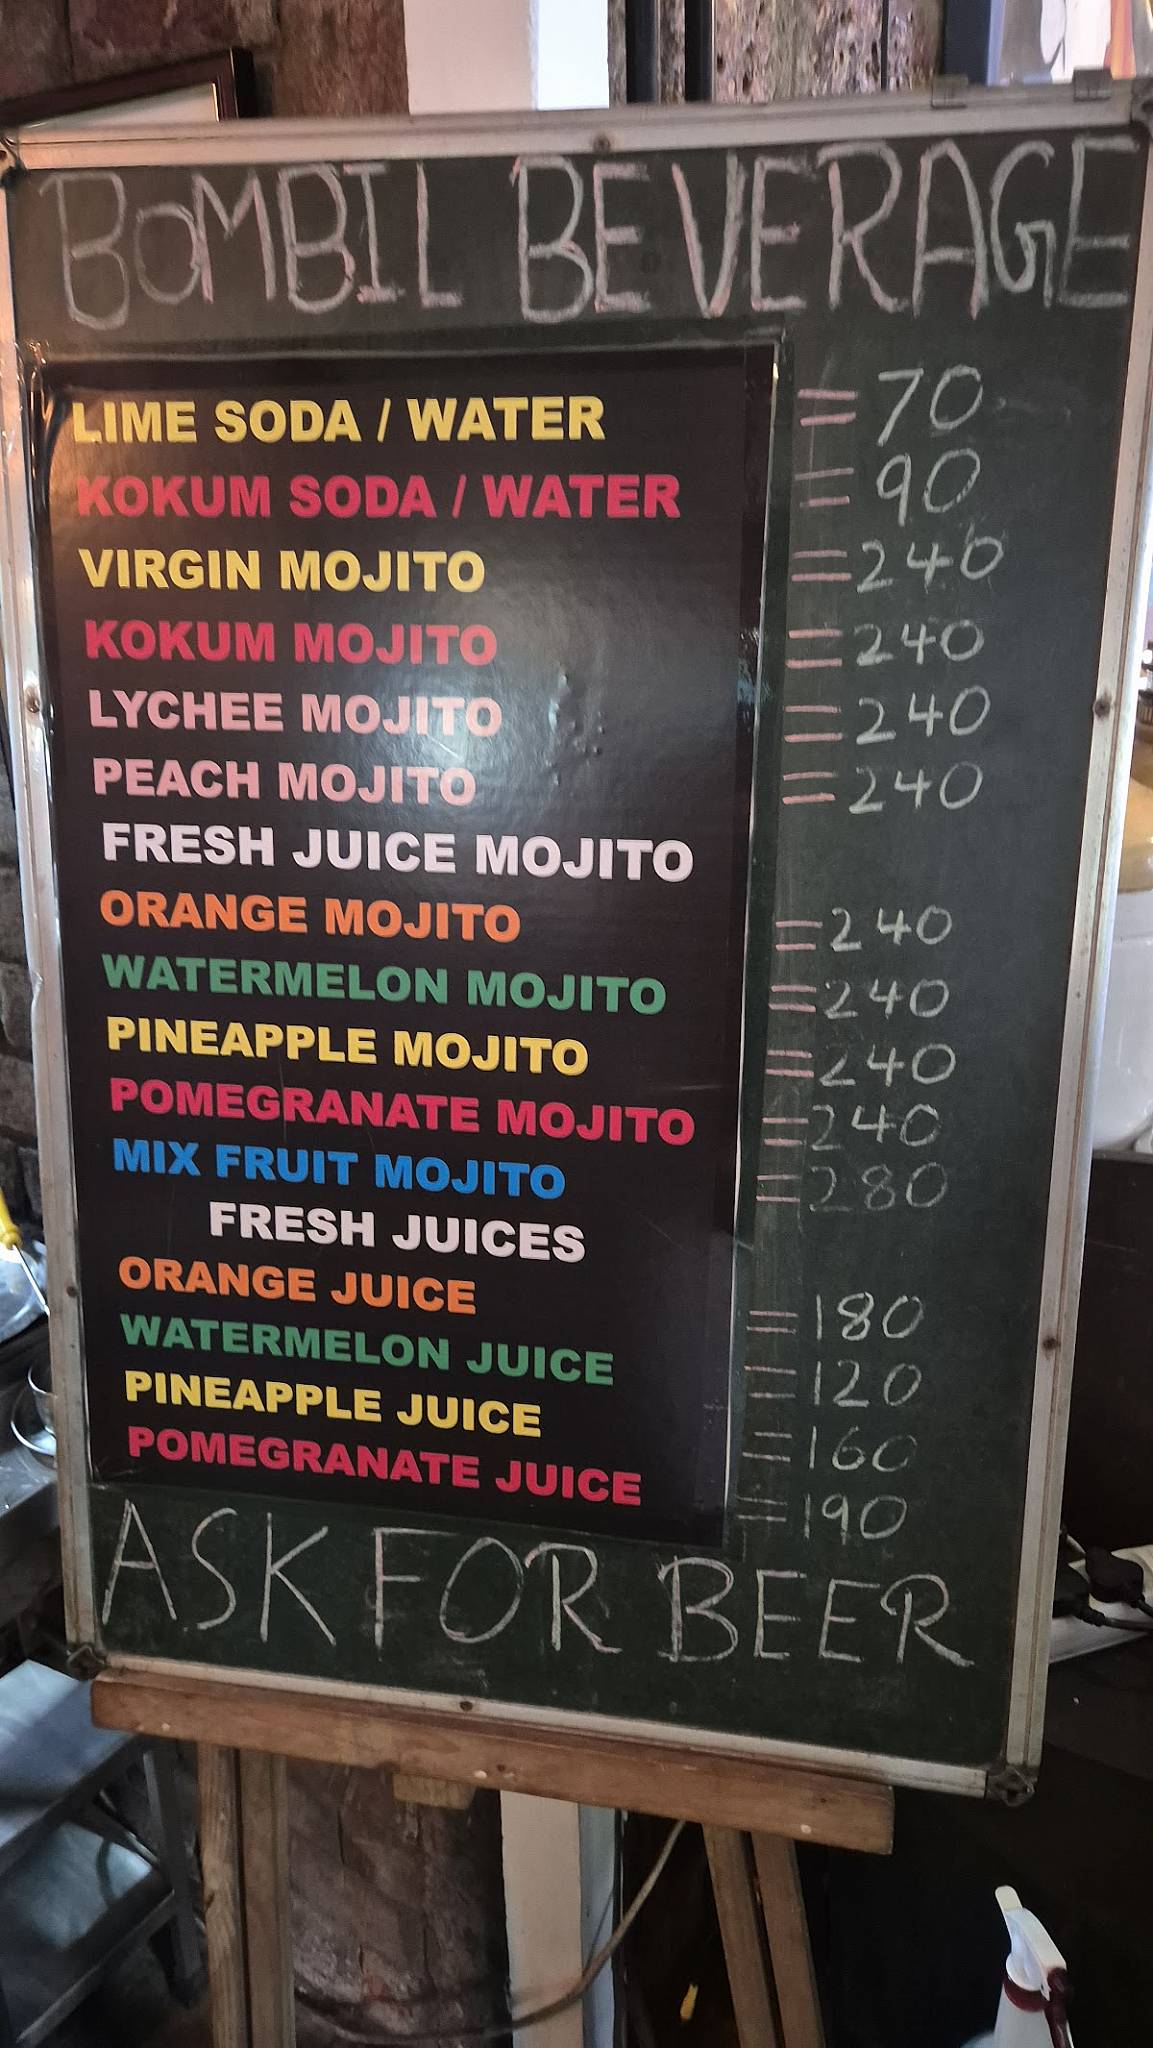 BOMBIL BEVERAGE
LIME SODA / WATER = 70
KOKUM SODA / WATER = 90
VIRGIN MOJITO = 240
KOKUM MOJITO = 240
LYCHEE MOJITO = 240
PEACH MOJITO = 240
FRESH JUICE MOJITO
ORANGE MOJITO = 240
WATERMELON MOJITO = 240
PINEAPPLE MOJITO = 240
POMEGRANATE MOJITO = 240
MIX FRUIT MOJITO = 280
FRESH JUICES
ORANGE JUICE = 180
WATERMELON JUICE = 120
PINEAPPLE JUICE = 160
POMEGRANATE JUICE = 190
ASK FOR BEER